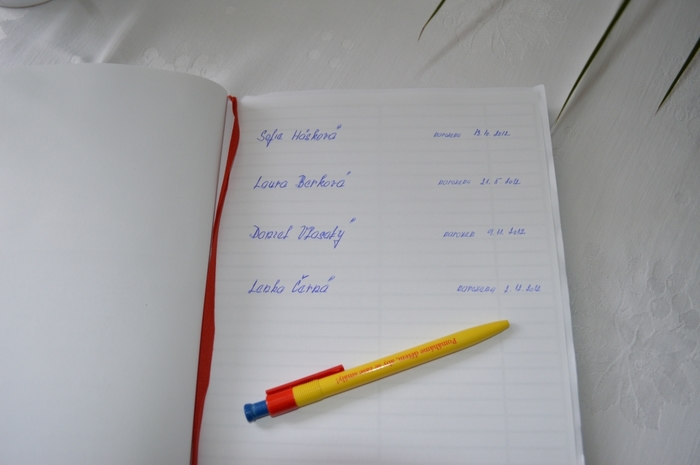 Sofie Hásková
narozena 13.4.2012
Laura Berková
narozena 21.5.2012
Daniel Vlasatý
narozen 2012
Lenka Černá
narozena 2012
Pomáháme dětem,